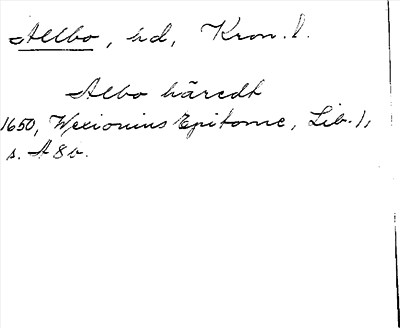 Allbo, hd, Kron. l.
Albo häredh
1650, Wexionius Epitome, Lib. 1,
s. A 8 v.